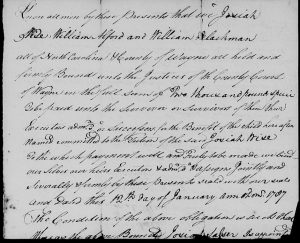 Know all men by these Presents that we Josiah
Wise William Alford and William Blackman
all of North Carolina & County of Wayne all held and
firmly Bound unto the Justices of the County Court
of Wayne in the full Sum of Two thousand pound specie
to be paid unto the Survivor or Survivors of them their
Executors admrs or Successors for the Benefit of the child
Named committed to the Tuition of the sd Josiah Wise
to the which payment well and truly to be made we bind
our selves our heirs Executors admrs & Assigns Jointly and
Severally firmly by these Presents sealed with our seals
and Dated this 12th Day of January anno dom 1787
The Condition of the above obligation is such that
Whereas the above Bounden Josiah